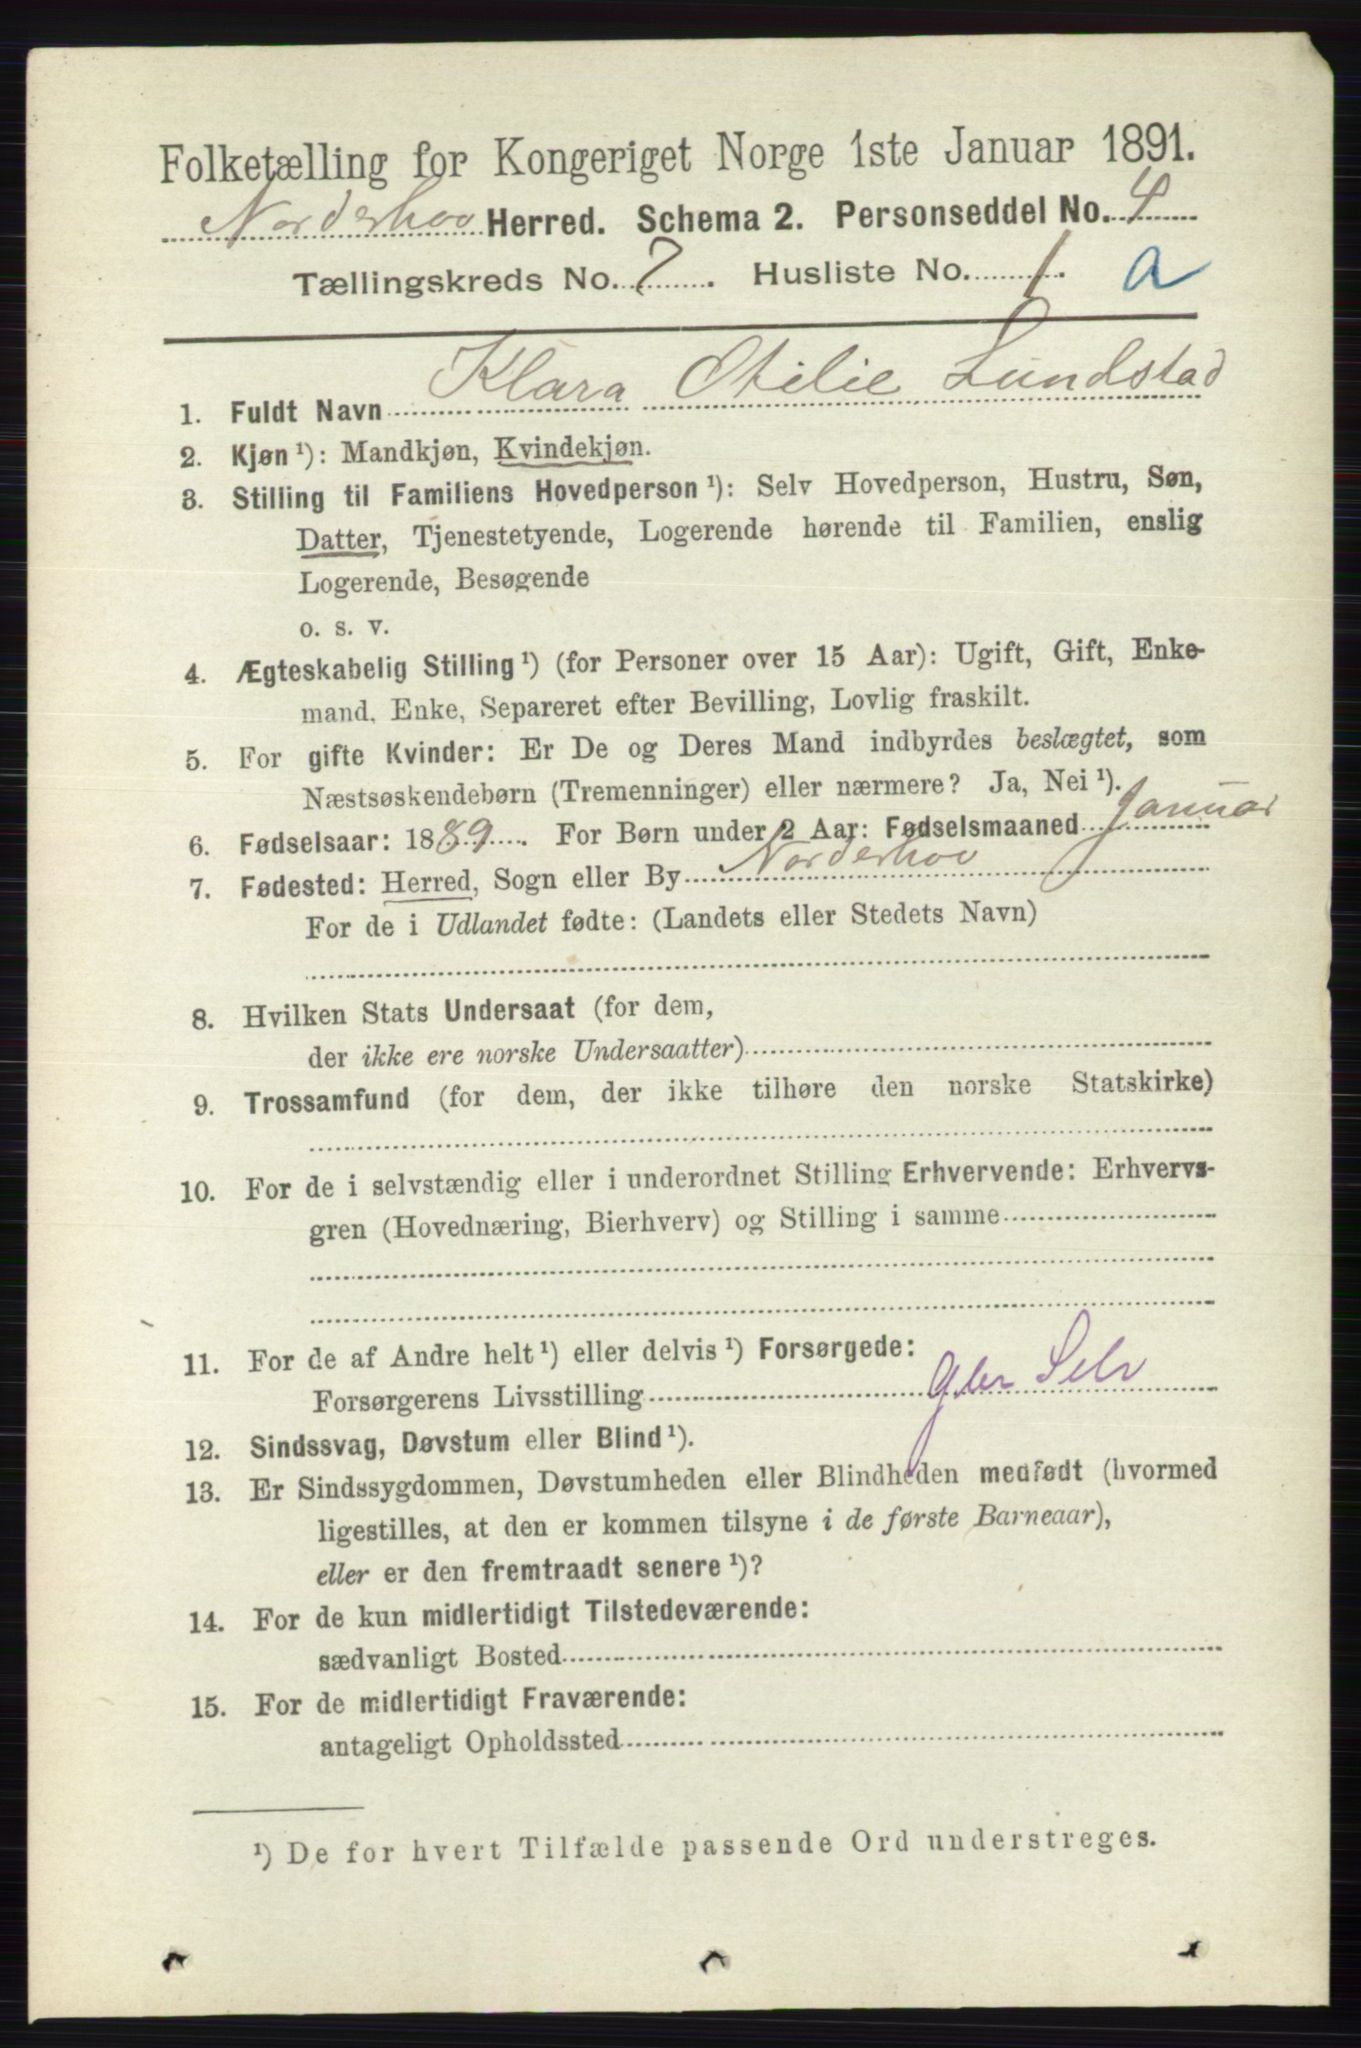 Folketælling for Kongeriget Norge 1ste Januar 1891.
Norderhov Herred. Schema 2. Personseddel No. 4
Tællingskreds No. 7. Husliste No. 1. a
1. Fuldt Navn Klara Otilie Lundstad
2. Kjøn ¹): Mandkjøn, Kvindekjøn.
3. Stilling til Familiens Hovedperson ¹): Selv Hovedperson, Hustru, Søn,
Datter, Tjenestetyende, Logerende hørende til Familien, enslig
Logerende, Besøgende
o. s. v.
4. Ægteskabelig Stilling ¹) (for Personer over 15 Aar): Ugift, Gift, Enke-
mand, Enke, Separeret efter Bevilling, Lovlig fraskilt.
5. For gifte Kvinder: Er De og Deres Mand indbyrdes beslægtet, som
Næstsøskendebørn (Tremenninger) eller nærmere? Ja, Nei ¹).
6. Fødselsaar: 1889. For Børn under 2 Aar: Fødselsmaaned Januar
7. Fødested: Herred, Sogn eller By Norderhov
For de i Udlandet fødte: (Landets eller Stedets Navn)
8. Hvilken Stats Undersaat (for dem,
der ikke ere norske Undersaatter)
9. Trossamfund (for dem, der ikke tilhøre den norske Statskirke)
10. For de i selvstændig eller i underordnet Stilling Erhvervende: Erhvervs-
gren (Hovednæring, Bierhverv) og Stilling i samme
11. For de af Andre helt ¹) eller delvis ¹) Forsørgede:
Forsørgerens Livsstilling Selv
12. Sindssvag, Døvstum eller Blind ¹).
13. Er Sindssygdommen, Døvstumheden eller Blindheden medfødt (hvormed
ligestilles, at den er kommen tilsyne i de første Barneaar),
eller er den fremtraadt senere ¹)?
14. For de kun midlertidigt Tilstedeværende:
sædvanligt Bosted
15. For de midlertidigt Fraværende:
antageligt Opholdssted
¹) De for hvert Tilfælde passende Ord understreges.